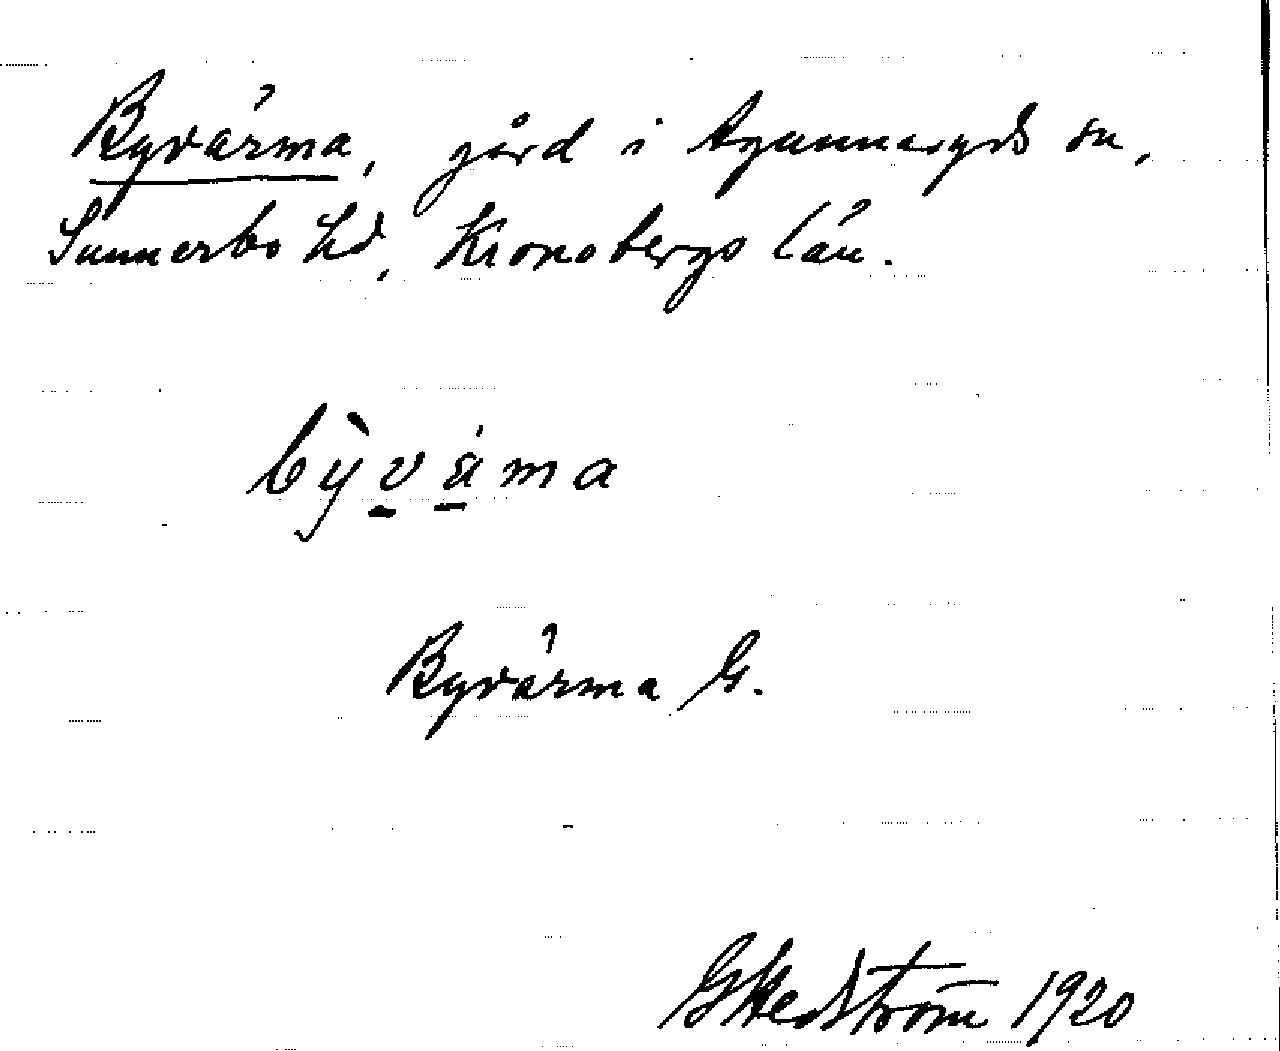 Byvärma, gård i Agunnaryds sn,
Sunnerbo hd, Kronobergs län.
bỳvä́ma
Byvärma G.
G Hedström 1920